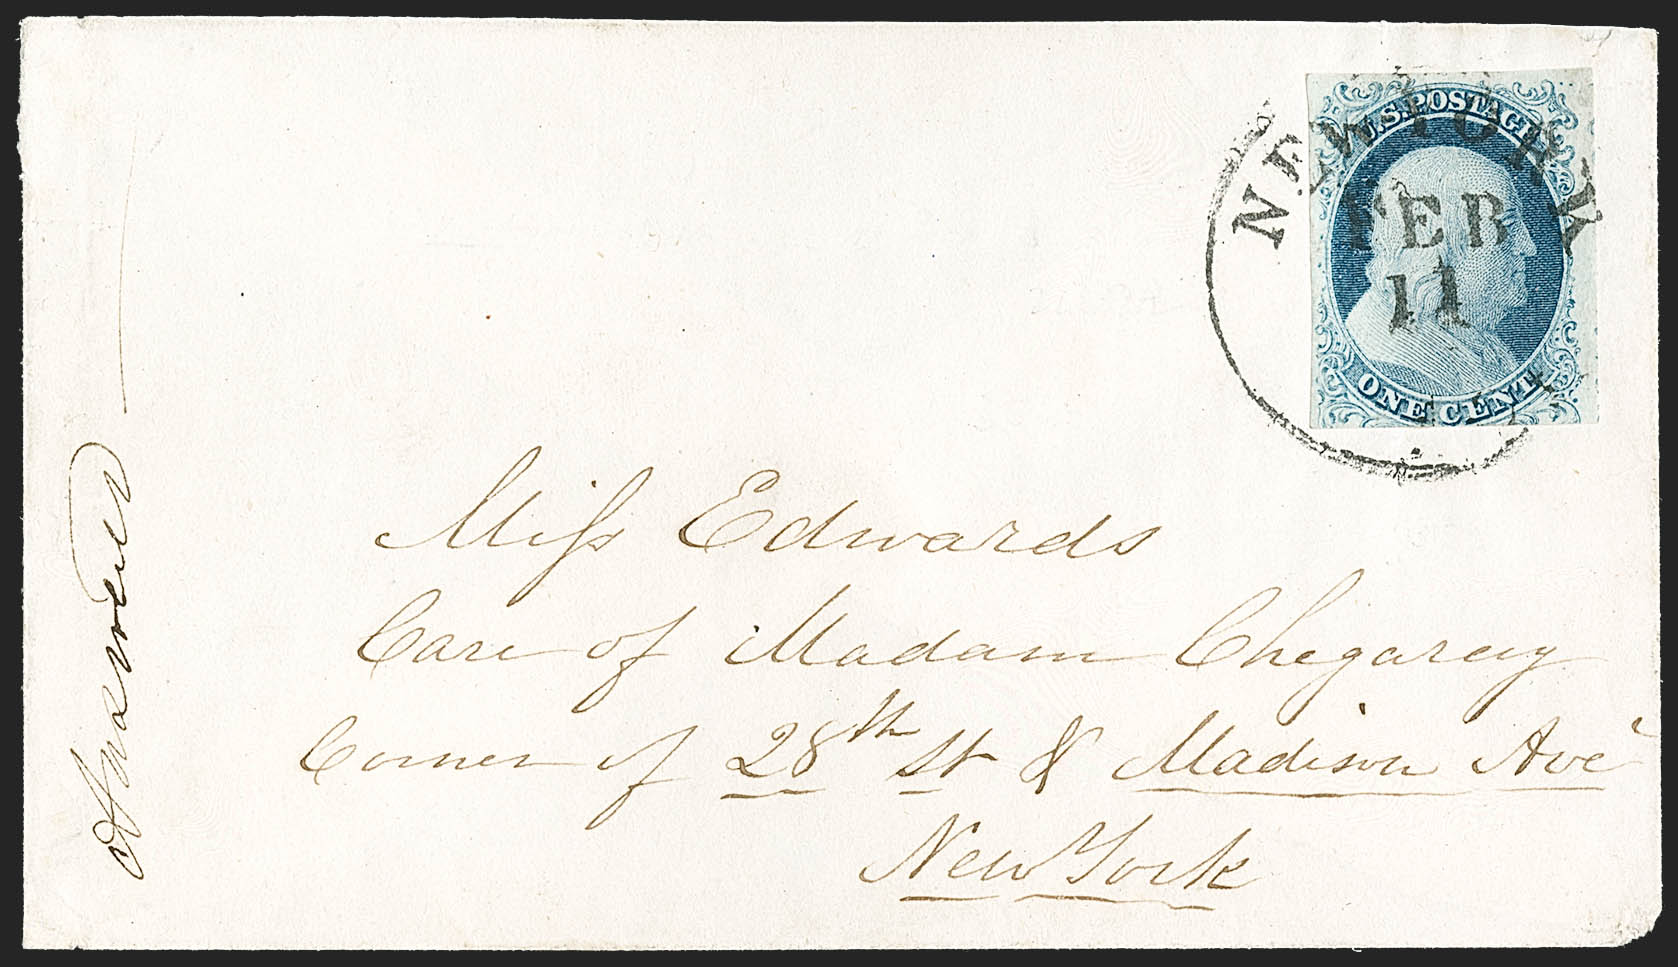 U.S. POSTAGE
NEW YORK
FEB
11
ONE CENT
Miss Edwards
Care of Madam Chegaray
Corner of 28th St & Madison Ave
New York
Answered